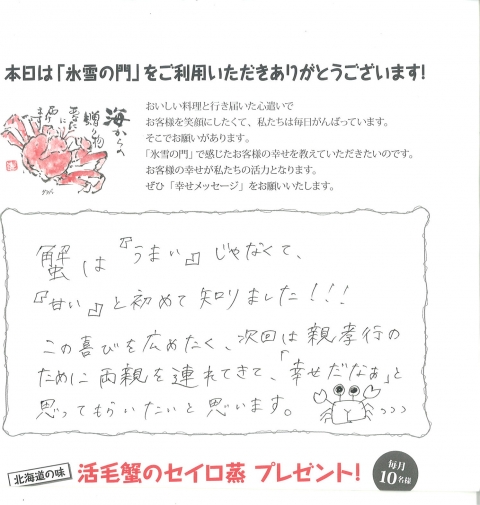 本日は「氷雪の門」をご利用いただきありがとうございます!
海からの
贈り物
おいしい料理と行き届いた心遣いで
お客様を笑顔にしたくて、私たちは毎日がんばっています。
そこでお願いがあります。
「氷雪の門」で感じたお客様の幸せを教えていただきたいのです。
お客様の幸せが私たちの活力となります。
ぜひ「幸せメッセージ」をお願いいたします。
蟹は『うまい』じゃなくて、
『甘い』と初めて知りました!!!
この喜びを広めたく、次回は親孝行の
ために両親を連れてきて、「幸せだなぁ」と
思ってもらいたいと思います。
北海道の味
活毛蟹のセイロ蒸 プレゼント!
毎月
10名様